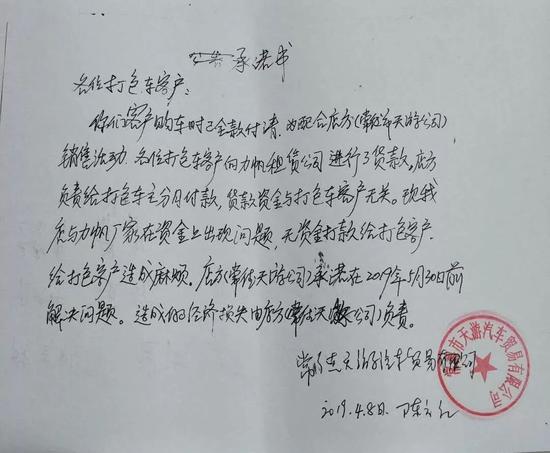 承诺书
各位打包车客户:
你们客户购车时已全款付清,为配合店方(常德市天游公司)
销售活动.各位打包车客户向力帆租赁公司进行了贷款,店方
负责给打包车主分月付款,贷款资金与打包车客户无关。现我
店与力帆厂家在资金上出现问题,无资金打款给打包客户.
给打包客户造成麻烦。店方(常德天游公司)承诺在2019年5月30日前
解决问题。造成的经济损失由店方(常德天游公司)负责。
常德市天游汽车贸易有限公司
2019.4.8日.
市天游汽车贸易有限公司